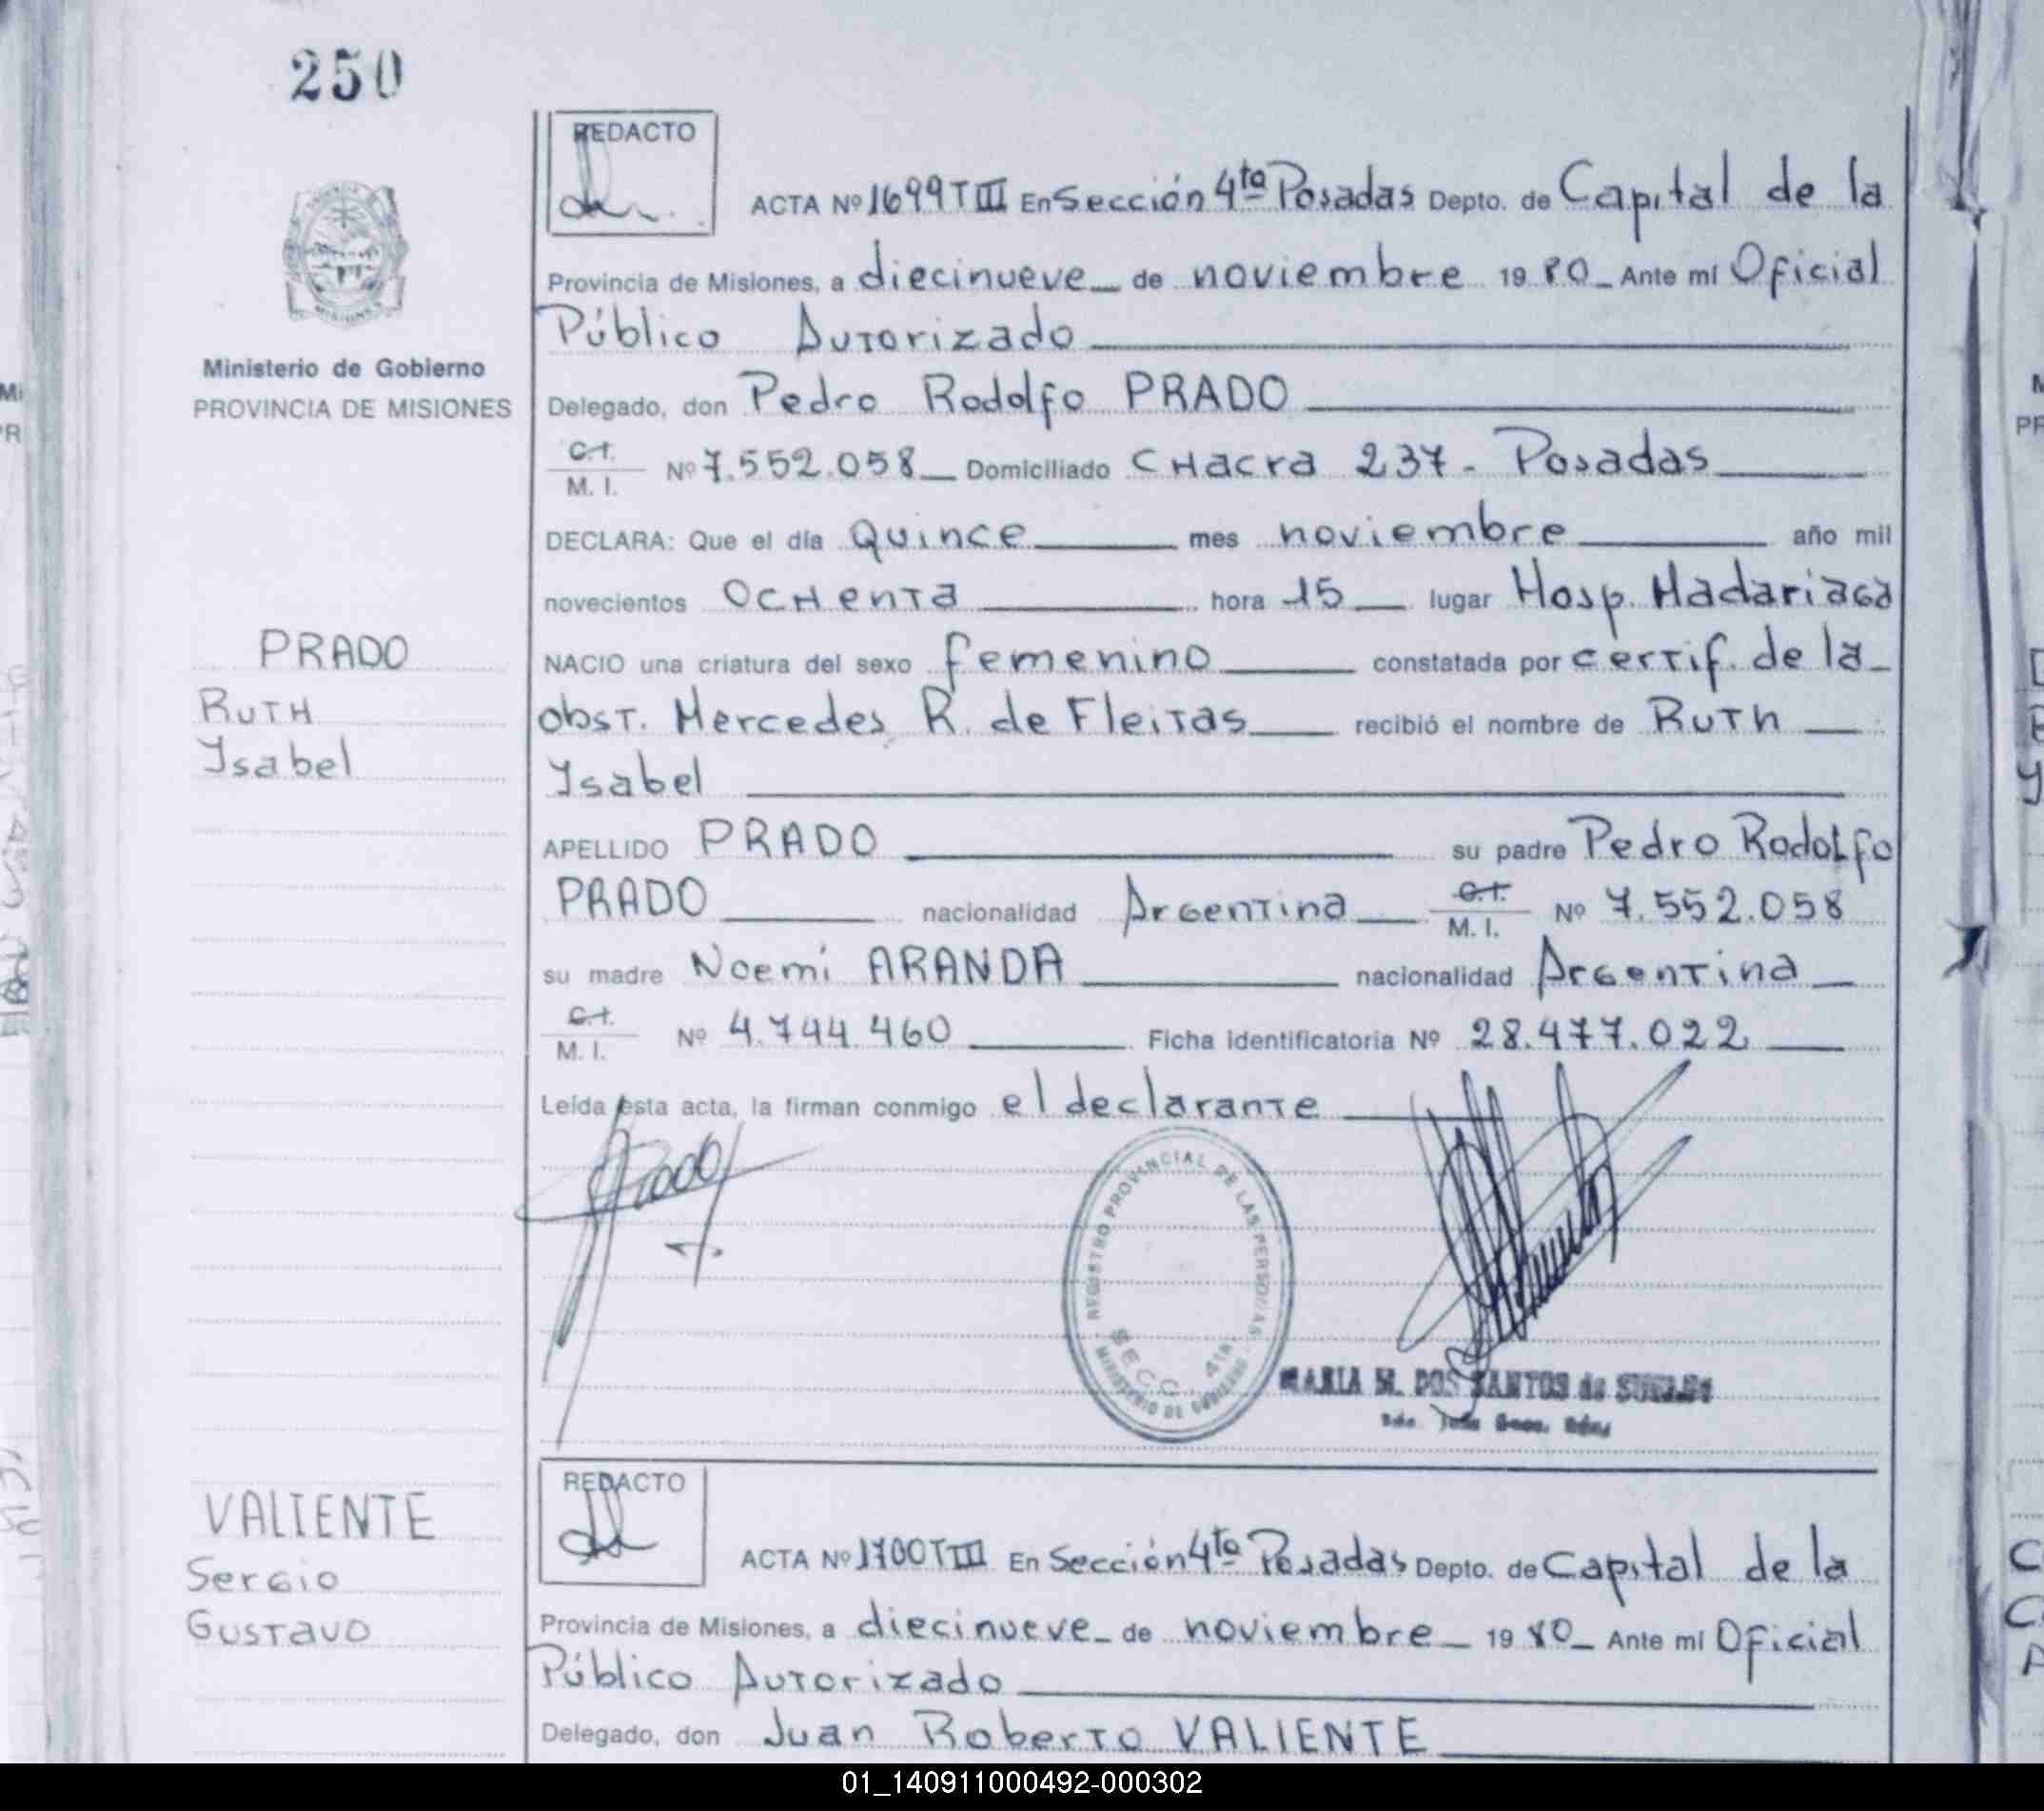 250
REDACTO
ACTA Nº 1699 T III En Sección 4ta Posadas Depto. de Capital de la
Provincia de Misiones, a diecinueve de noviembre 1980 Ante mí Oficial
Público Autorizado
Ministerio de Gobierno
PROVINCIA DE MISIONES
Delegado, don Pedro Rodolfo PRADO
C.I.
M. I. Nº 7.552.058 Domiciliado CHacra 237 - Posadas
DECLARA: Que el día Quince mes noviembre año mil
novecientos OCHenTa hora 15 lugar Hosp. Madariaga
PRADO
RuTH
Ysabel
NACIO una criatura del sexo femenino constatada por certif. de la
obst. Mercedes R. de Fleitas recibió el nombre de Ruth
Ysabel
APELLIDO PRADO su padre Pedro Rodolfo
PRADO nacionalidad Argentina C.I.
M. I. Nº 7.552.058
su madre Noemí ARANDA nacionalidad Argentina
C.I.
M. I. Nº 4.744.460 Ficha identificatoria Nº 28.477.022
Leída esta acta, la firman conmigo el declarante
Prado
REGISTRO PROVINCIAL DE LAS PERSONAS
SECC. 4ta
MINISTERIO DE GOBIERNO
MARIA M. DOS SANTOS de
VALIENTE
Sergio
Gustavo
REDACTO
ACTA Nº 1700 T III En Sección 4ta Posadas Depto. de Capital de la
Provincia de Misiones, a diecinueve de noviembre 1980 Ante mí Oficial
Público Autorizado
Delegado, don Juan Roberto VALIENTE
01_140911000492-000302